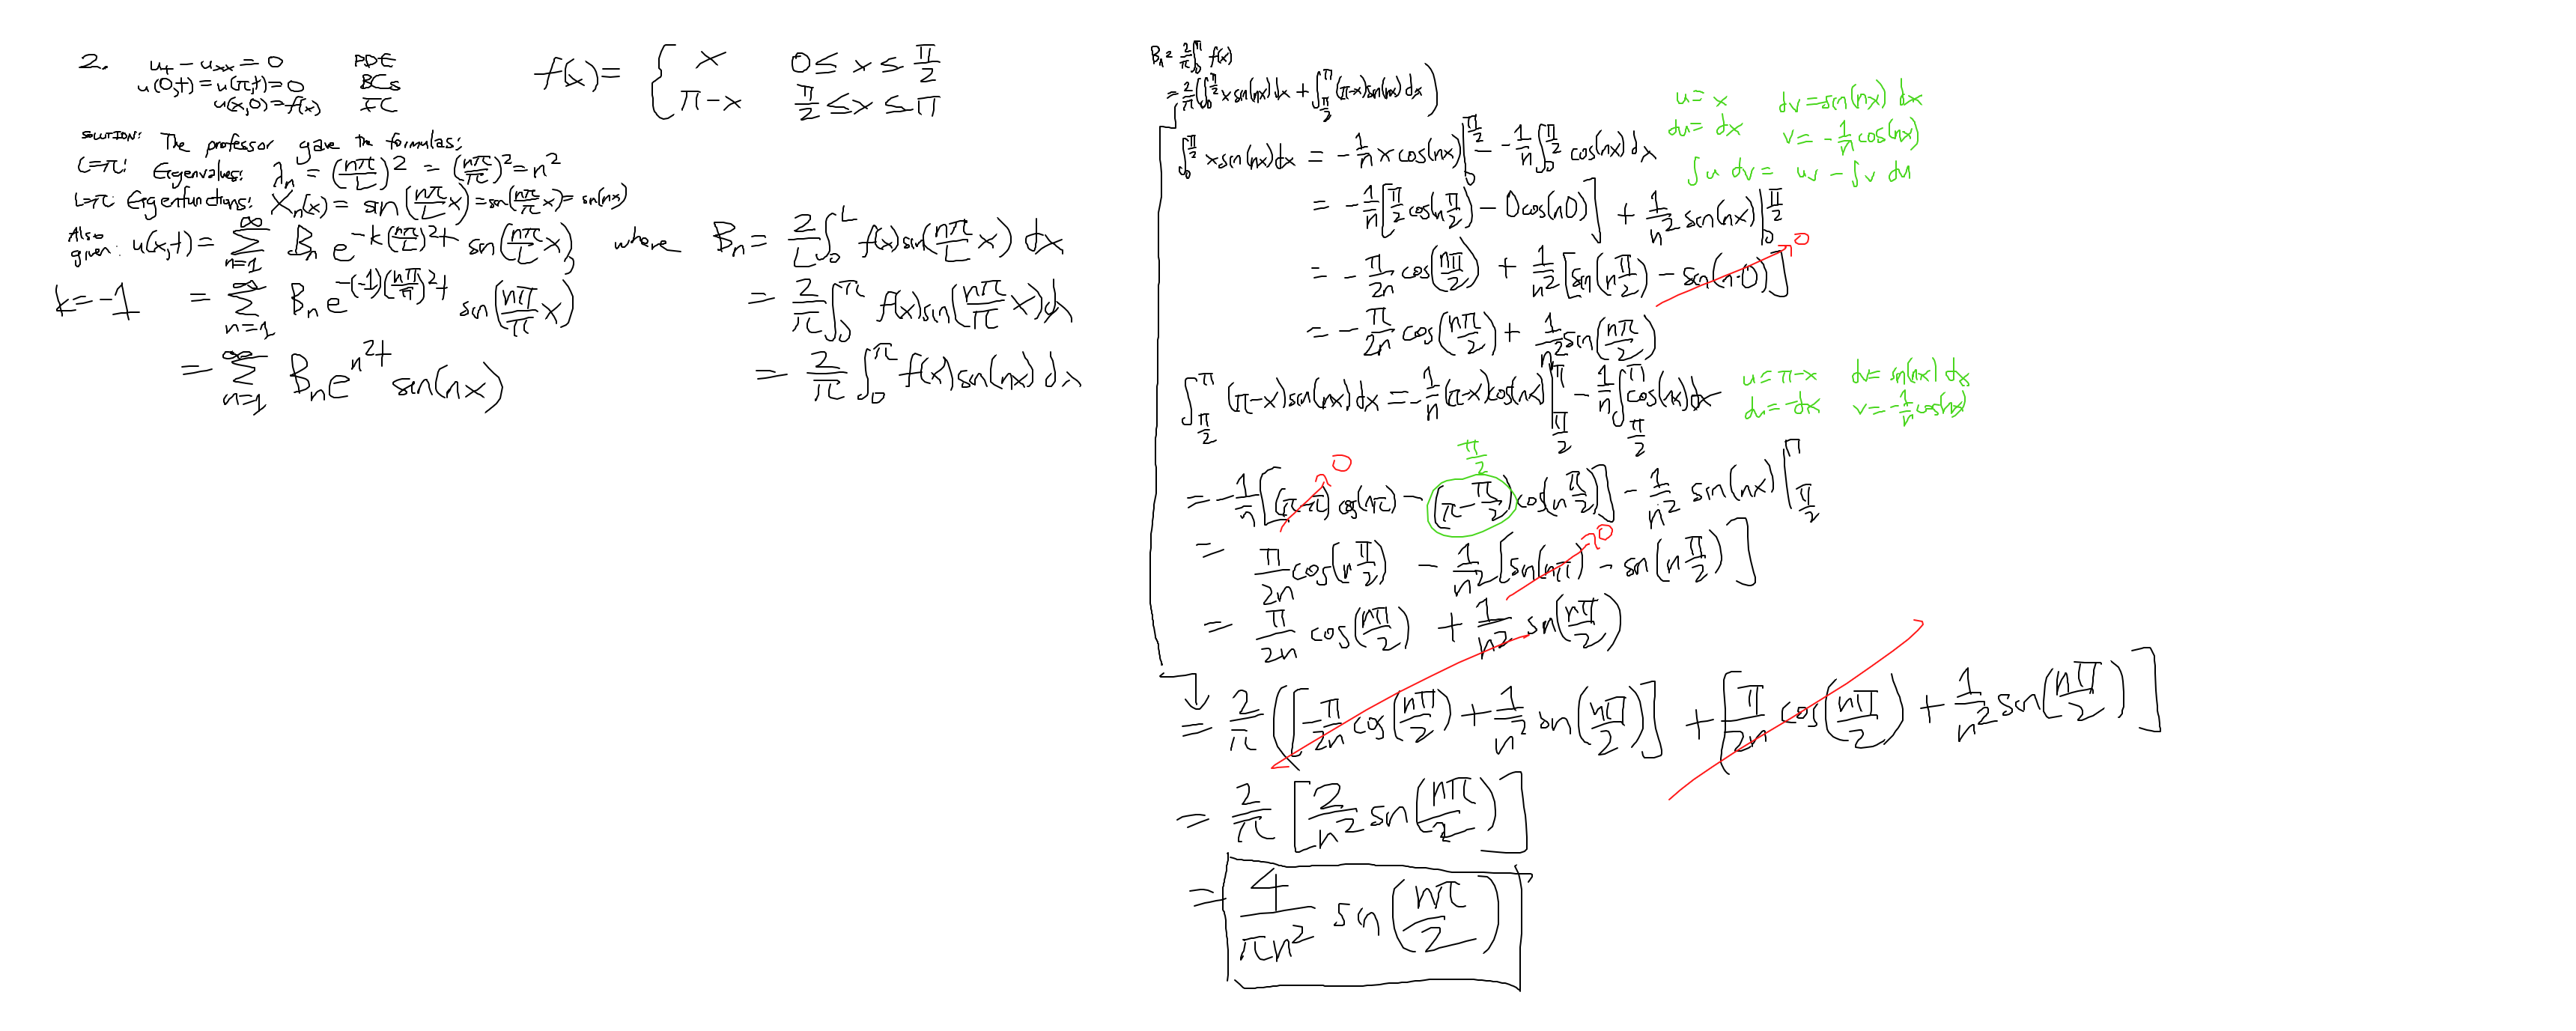 2. u_t - u_xx = 0 PDE
u(0,t) = u(π,t) = 0 BCs
u(x,0) = f(x) IC
f(x) = { x 0 ≤ x ≤ π/2
π-x π/2 ≤ x ≤ π
SOLUTION: The professor gave the formulas:
L=π: Eigenvalues: λ_n = (nπ/L)^2 = (nπ/π)^2 = n^2
L=π: Eigenfunctions: X_n(x) = sin(nπ/L x) = sin(nπ/π x) = sin(nx)
Also given: u(x,t) = ∑_{n=1}^∞ B_n e^{-k(nπ/L)^2 t} sin(nπ/L x), where B_n = 2/L ∫_0^L f(x) sin(nπ/L x) dx
k=-1 = ∑_{n=1}^∞ B_n e^{-(-1)(nπ/π)^2 t} sin(nπ/π x) = 2/π ∫_0^π f(x) sin(nπ/π x) dx
= ∑_{n=1}^∞ B_n e^{n^2 t} sin(nx) = 2/π ∫_0^π f(x) sin(nx) dx
B_n = 2/π ∫_0^π f(x)
= 2/π (∫_0^{π/2} x sin(nx) dx + ∫_{π/2}^π (π-x) sin(nx) dx)
u = x dv = sin(nx) dx
du = dx v = -1/n cos(nx)
∫ u dv = uv - ∫ v du
∫_0^{π/2} x sin(nx) dx = -1/n x cos(nx) |_0^{π/2} - -1/n ∫_0^{π/2} cos(nx) dx
= -1/n [π/2 cos(n π/2) - 0 cos(n0)] + 1/n^2 sin(nx) |_0^{π/2}
= -π/2n cos(nπ/2) + 1/n^2 [sin(n π/2) - sin(n·0)] 0
= -π/2n cos(nπ/2) + 1/n^2 sin(nπ/2)
∫_{π/2}^π (π-x) sin(nx) dx = -1/n (π-x) cos(nx) |_{π/2}^π - 1/n ∫_{π/2}^π cos(nx) dx
u = π-x dv = sin(nx) dx
du = -dx v = -1/n cos(nx)
π/2
= -1/n [(π-π) 0 cos(nπ) - (π - π/2) cos(n π/2)] - 1/n^2 sin(nx) |_{π/2}^π
= π/2n cos(n π/2) - 1/n^2 [sin(nπ) 0 - sin(n π/2)]
= π/2n cos(nπ/2) + 1/n^2 sin(nπ/2)
= 2/π ([-π/2n cos(nπ/2) + 1/n^2 sin(nπ/2)] + [π/2n cos(nπ/2) + 1/n^2 sin(nπ/2)]
= 2/π [2/n^2 sin(nπ/2)]
= 4/πn^2 sin(nπ/2)